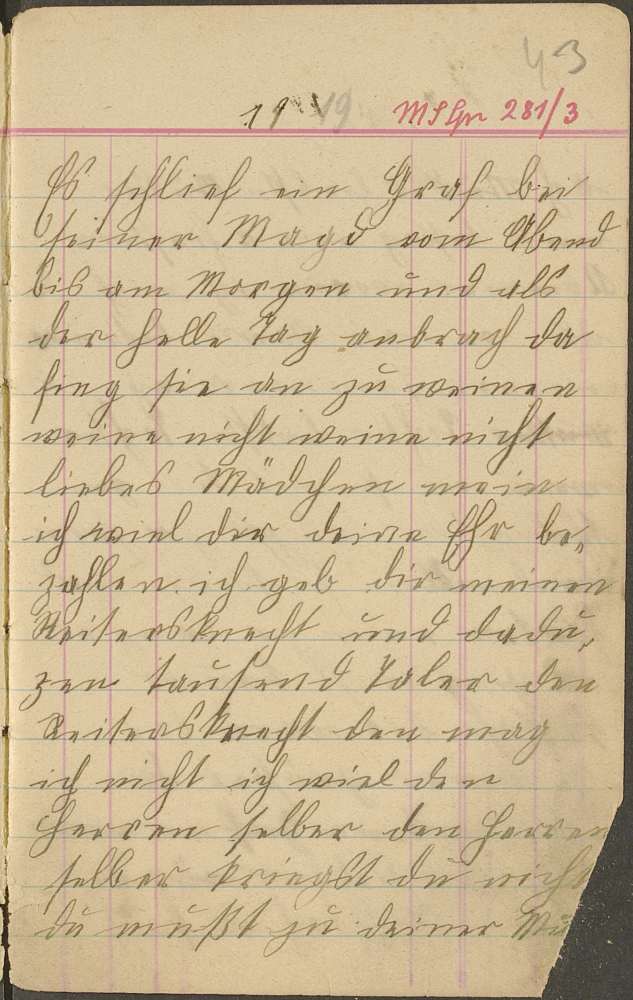 43
19 19 MS Gr 281/3
Es schlief ein Graf bei
seiner Magd vom Abend
bis am Morgen und als
der helle Tag anbrach da
fing sie an zu weinen
weine nicht weine nicht
liebes Mädchen mein
ich wiel dir deine Ehr be„
zahlen ich geb dir meinen
Reitersknecht und dadu„
zen tausend Taler den
Reitersknecht den mag
ich nicht ich wiel den
Herren selber den Herren
selber kriegst du nicht
du mußt zu deiner